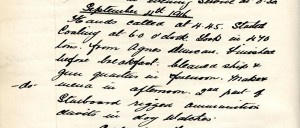 September
Hands called at 4.45. Started
Coaling at 6 o'clock. Took in 470
tons. from Agnes Duncan. Finished
before breakfast. Cleaned ship &
gun quarters in forenoon. Make &
-do- mend in afternoon. 2nd part of
Starboard rigged ammunition
davits in dog watches.